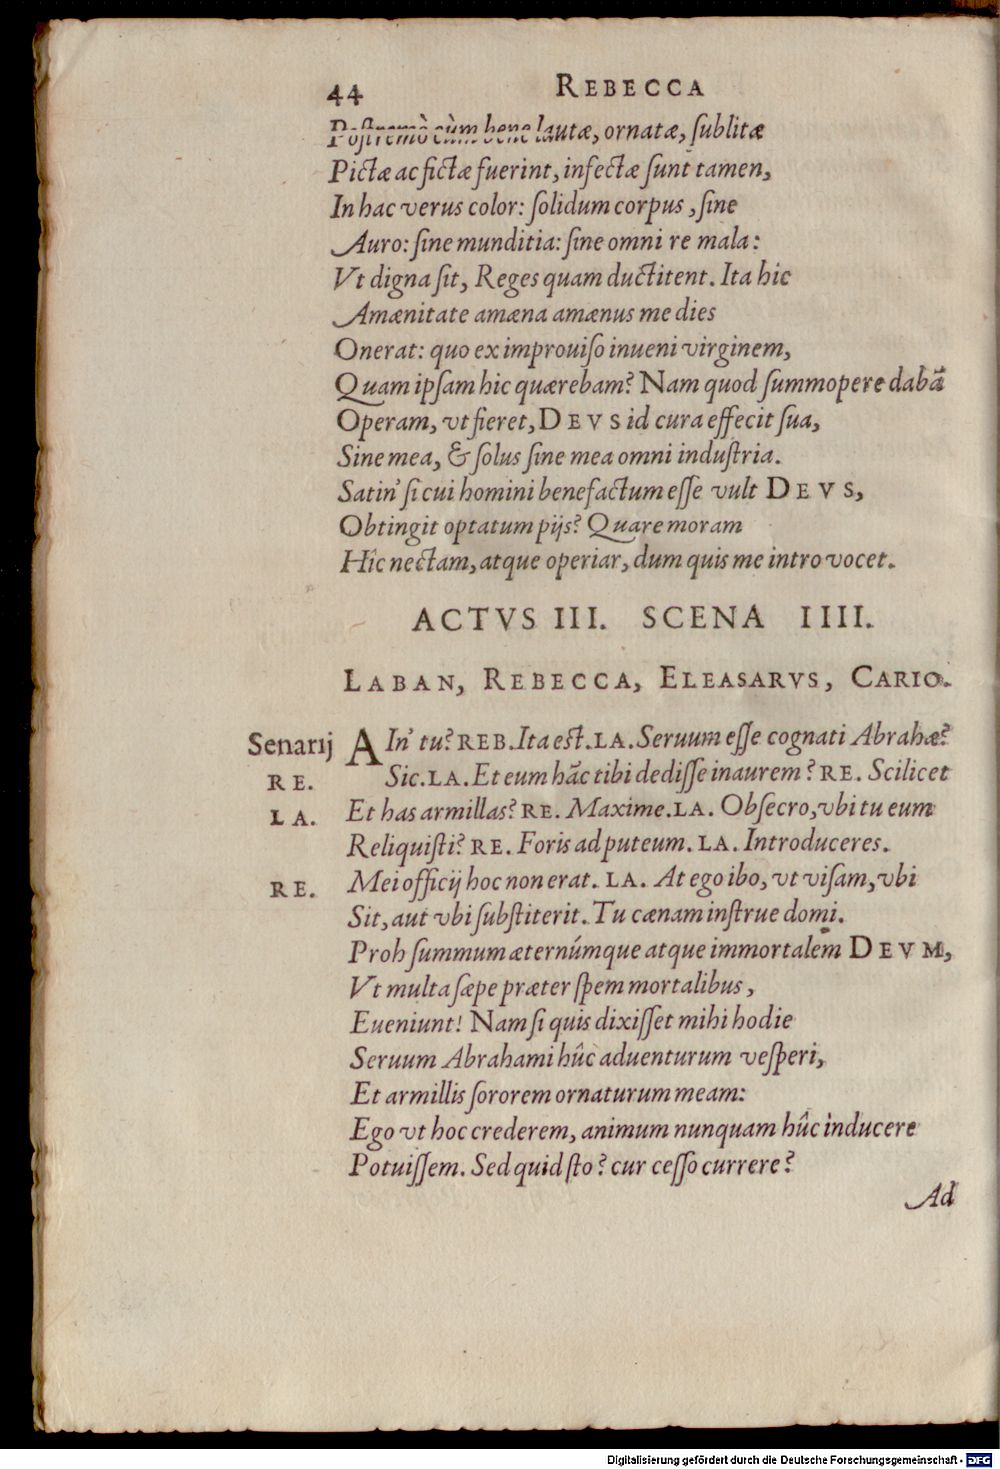 44 REBECCA
Postremò cùm bene lautæ, ornatæ, ſublitæ
Pictæ ac fictæ fuerint, infectæ ſunt tamen,
In hac verus color: ſolidum corpus, ſine
Auro: ſine munditia: ſine omni re mala:
Vt digna ſit, Reges quam ductitent. Ita hic
Amænitate amæna amænus me dies
Onerat: quo ex improuiſo inueni virginem,
Quam ipſam hic quærebam? Nam quod ſummopere dabã
Operam, vt fieret, DEVS id cura effecit ſua,
Sine mea, & ſolus ſine mea omni induſtria.
Satin' ſi cui homini benefactum eſſe vult DEVS,
Obtingit optatum pijs? Quare moram
Hîc nectam, atque operiar, dum quis me intro vocet.
ACTVS III. SCENA IIII.
LABAN, REBECCA, ELEASARVS, CARIO.
Senarij AIn' tu? REB. Ita eſt. LA. Seruum eſſe cognati Abrahæ?
RE. Sic. LA. Et eum hãc tibi dediſſe inaurem? RE. Scilicet
LA. Et has armillas? RE. Maxime. LA. Obſecro, vbi tu eum
Reliquiſti? RE. Foris ad puteum. LA. Introduceres.
RE. Mei officij hoc non erat. LA. At ego ibo, vt viſam, vbi
Sit, aut vbi ſubſtiterit. Tu cænam inſtrue domi.
Proh ſummum æternúmque atque immortalem DEVM,
Vt multa ſæpe præter ſpem mortalibus,
Eueniunt! Nam ſi quis dixiſſet mihi hodie
Seruum Abrahami hûc aduenturum veſperi,
Et armillis ſororem ornaturum meam:
Ego vt hoc crederem, animum nunquam hûc inducere
Potuiſſem. Sed quid ſto? cur ceſſo currere?
Ad
Digitalisierung gefördert durch die Deutsche Forschungsgemeinschaft - DFG